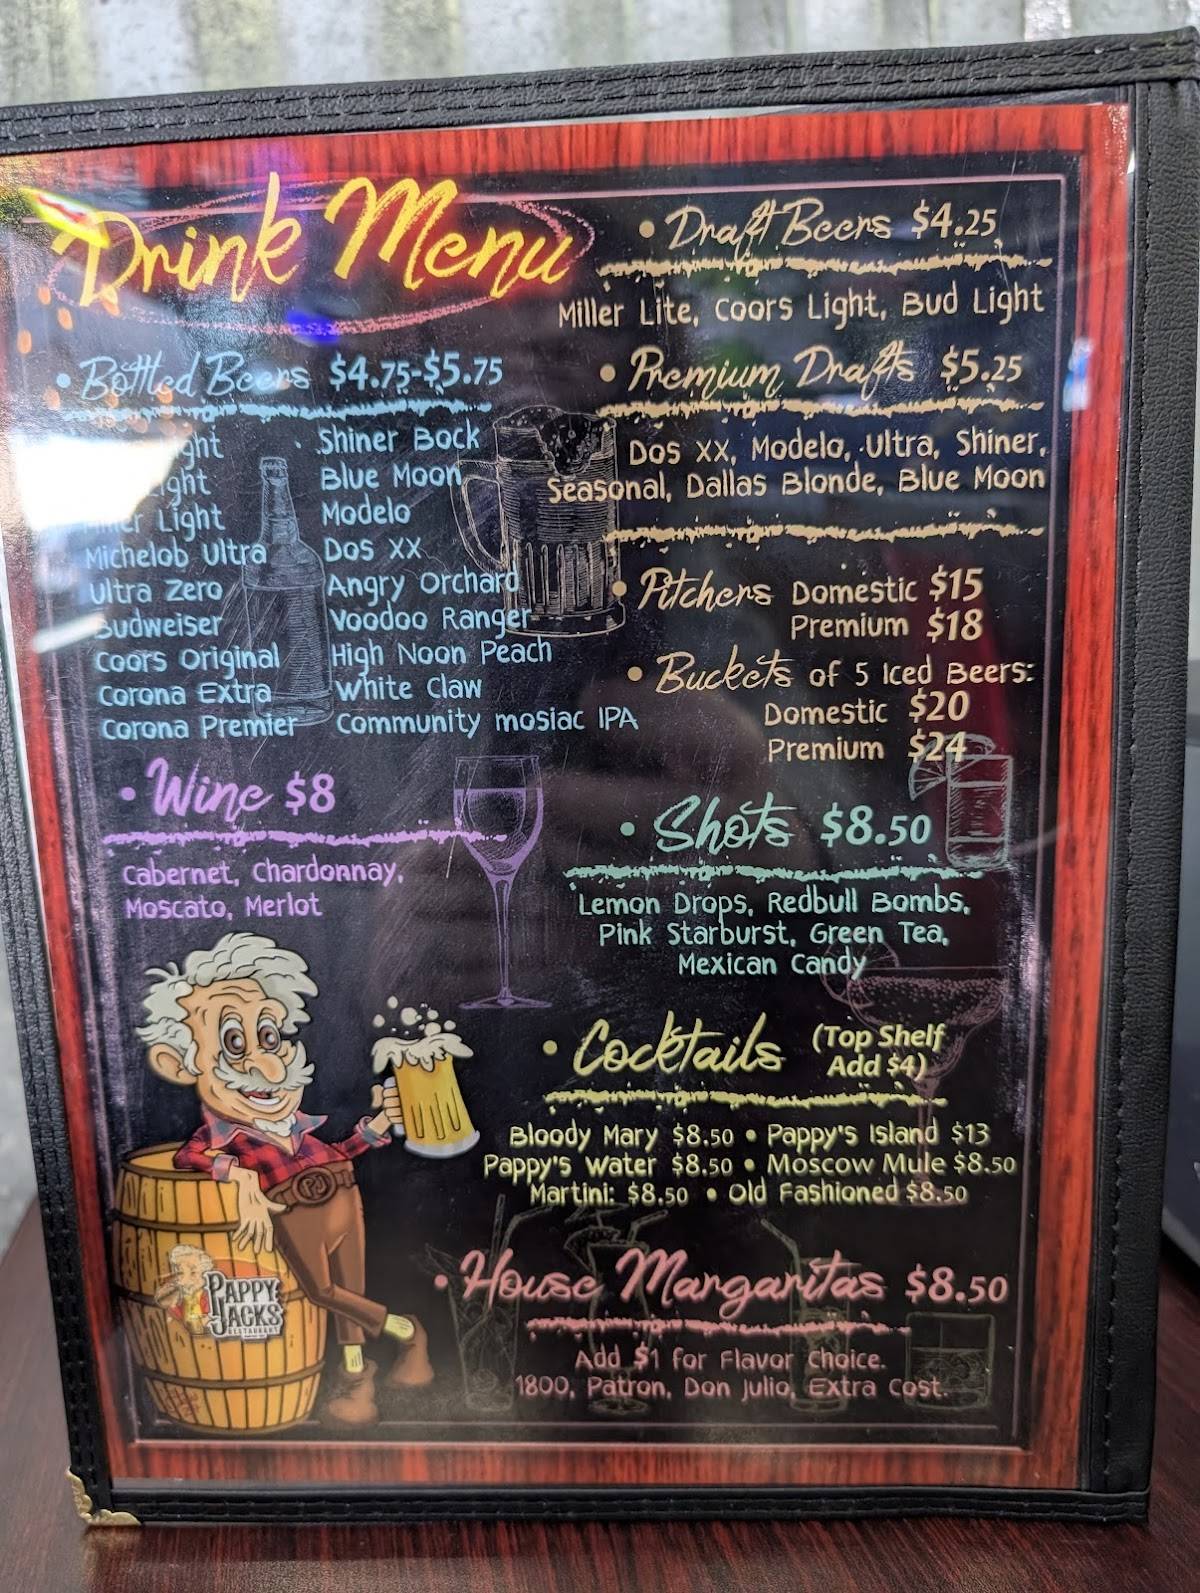 Drink Menu
• Bottled Beers $4.75-$5.75
Shiner Bock
Blue Moon
Light
Modelo
Michelob Ultra
Dos XX
Ultra Zero
Angry Orchard
Budweiser
Voodoo Ranger
Coors Original
High Noon Peach
Corona Extra
White Claw
Corona Premier
Community mosiac IPA
• Wine $8
Cabernet, Chardonnay,
Moscato, Merlot
• Draft Beers $4.25
Miller Lite, Coors Light, Bud Light
• Premium Drafts $5.25
Dos XX, Modelo, Ultra, Shiner,
Seasonal, Dallas Blonde, Blue Moon
• Pitchers Domestic $15
Premium $18
• Buckets of 5 Iced Beers:
Domestic $20
Premium $24
• Shots $8.50
Lemon Drops, Redbull Bombs,
Pink Starburst, Green Tea,
Mexican Candy
• Cocktails (Top Shelf
Add $4)
Bloody Mary $8.50 • Pappy's Island $13
Pappy's Water $8.50 • Moscow Mule $8.50
Martini: $8.50 • Old Fashioned $8.50
• House Margaritas $8.50
Add $1 for Flavor Choice.
1800, Patron, Don Julio, Extra Cost.
PAPPY
JACKS
RESTAURANT